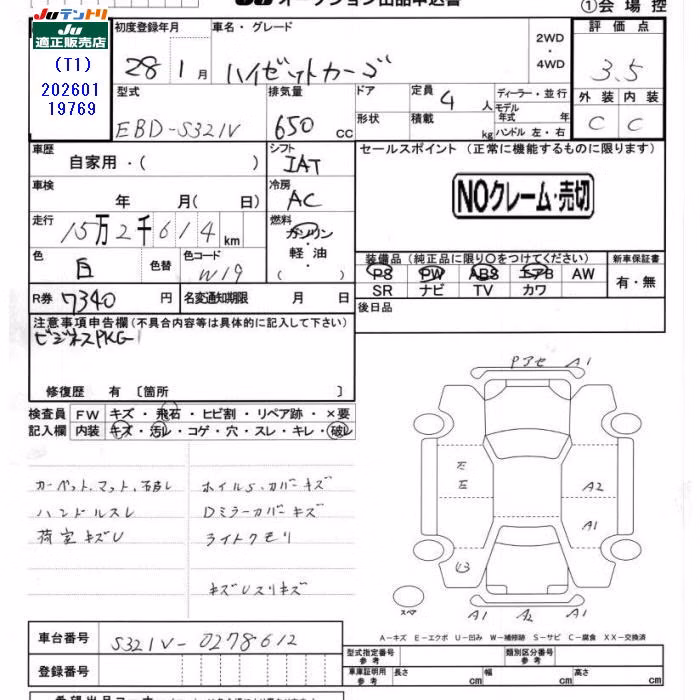 Juテントリ
JU オークション出品申込書
①会場控
JU
適正販売店
(T1)
202601
19769
初度登録年月
車名・グレード
28 1月
ハイゼットカーゴ
2WD
・
4WD
評価点
3.5
外装 内装
C C
型式
EBD-S321V
排気量
650 cc
ドア
形状
定員 4 人
積載 kg
ディーラー・並行
モデル
年式 年
ハンドル 左・右
車歴
自家用・( )
シフト
IAT
セールスポイント (正常に機能するものに限ります)
NOクレーム・売切
車検
年 月( 日)
冷房
AC
走行
15万2千614km
燃料
ガソリン
・
軽油
・
色
白
色替
色コード
W19
装備品(純正品に限り○をつけてください)
PS PW ABS エアB AW
SR ナビ TV カワ
新車保証書
有・無
R券 7340 円
名変通知期限 月 日
後日品
注意事項申告欄(不具合内容等は具体的に記入して下さい)
ビジネスPKG
修復歴 有 〔箇所 〕
検査員
記入欄
FW キズ・飛石・ヒビ割・リペア跡・×要
内装 キズ・汚レ・コゲ・穴・スレ・キレ・破レ
カーペット、マット、破レ
ハンドルスレ
荷室キズU
ホイルS.カバーキズ
Dミラーカバーキズ
ライトクモリ
キズUスリキズ
Pアセ A1
E
E
A2
A1
U3
スペア
A1 A2 A1
A−キズ E−エクボ U−凹み W−補修跡 S−サビ C−腐食 XX−交換済
車台番号 S321V-0278612
登録番号
型式指定番号
参考
類別区分番号
参考
車庫証明用
参考
長さ cm 幅 cm 高さ cm